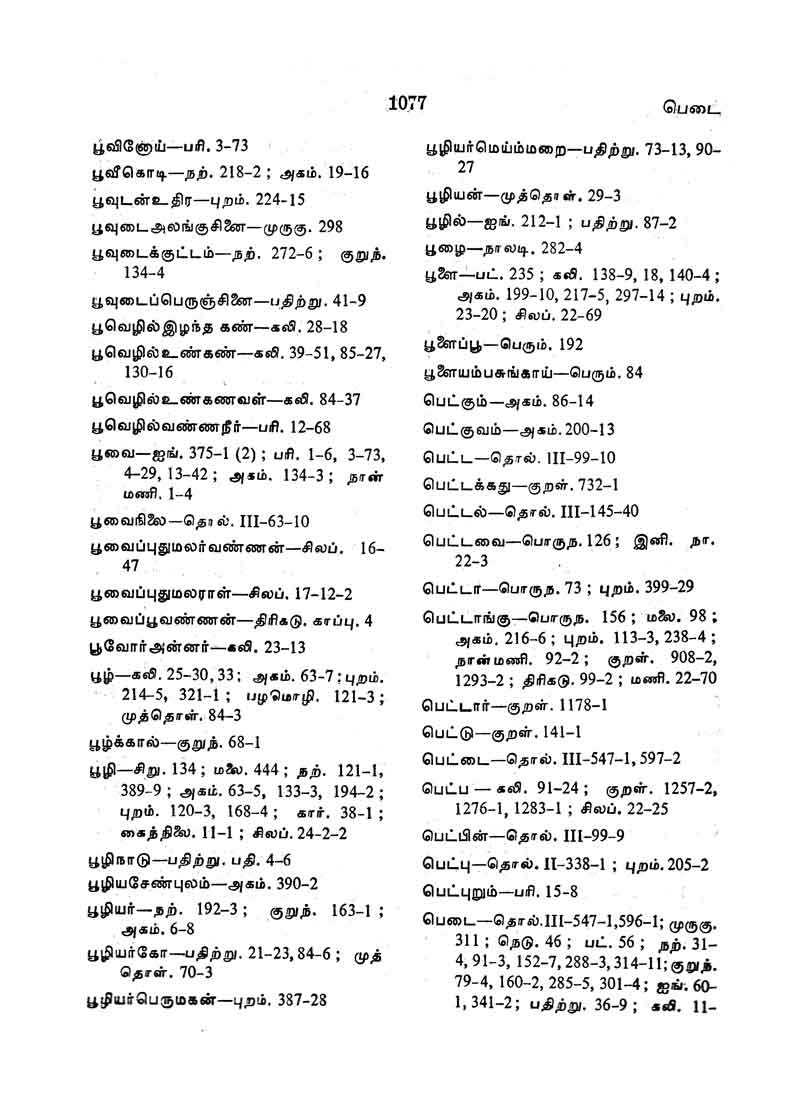 1077
பெடை
பூவினோய்—பரி. 3-73
பூவீகொடி—நற். 218-2 ; அகம். 19-16
பூவுடன்உதிர—புறம். 224-15
பூவுடைஅலங்குசினை—முருகு. 298
பூவுடைக்குட்டம்—நற். 272-6 ; குறுந்.
134-4
பூவுடைப்பெருஞ்சினை—பதிற்று. 41-9
பூவெழில்இழந்த கண்—கலி. 28-18
பூவெழில்உண்கண்—கலி. 39-51, 85-27,
130-16
பூவெழில்உண்கணவள்—கலி. 84-37
பூவெழில்வண்ணநீர்—பரி. 12-68
பூவை—ஐங். 375-1 (2) ; பரி. 1-6, 3-73,
4-29, 13-42 ; அகம். 134-3 ; நான்
மணி. 1-4
பூவைநிலை—தொல். III-63-10
பூவைப்புதுமலர்வண்ணன்—சிலப். 16-
47
பூவைப்புதுமலராள்—சிலப். 17-12-2
பூவைப்பூவண்ணன்—திரிகடு. காப்பு. 4
பூவோர்அன்னர்—கலி. 23-13
பூழ்—கலி. 25-30, 33 ; அகம். 63-7 ; புறம்.
214-5, 321-1 ; பழமொழி. 121-3 ;
முத்தொள். 84-3
பூழ்க்கால்—குறுந். 68-1
பூழி—சிறு. 134 ; மலை. 444 ; நற். 121-1,
389-9 ; அகம். 63-5, 133-3, 194-2 ;
புறம். 120-3, 168-4 ; கார். 38-1 ;
கைந்நிலை. 11-1 ; சிலப். 24-2-2
பூழிநாடு—பதிற்று. பதி. 4-6
பூழியசேண்புலம்—அகம். 390-2
பூழியர்—நற். 192-3 ; குறுந். 163-1 ;
அகம். 6-8
பூழியர்கோ—பதிற்று. 21-23, 84-6 ; முத்
தொள். 70-3
பூழியர்பெருமகன்—புறம். 387-28
பூழியர்மெய்ம்மறை—பதிற்று. 73-13, 90-
27
பூழியன்—முத்தொள். 29-3
பூழில்—ஐங். 212-1 ; பதிற்று. 87-2
பூழை—நாலடி. 282-4
பூளை—பட். 235 ; கலி. 138-9, 18, 140-4 ;
அகம். 199-10, 217-5, 297-14 ; புறம்.
23-20 ; சிலப். 22-69
பூளைப்பூ—பெரும். 192
பூளையம்பசுங்காய்—பெரும். 84
பெட்கும்—அகம். 86-14
பெட்குவம்—அகம். 200-13
பெட்ட—தொல். III-99-10
பெட்டக்கது—குறள். 732-1
பெட்டல்—தொல். III-145-40
பெட்டவை—பொருந. 126 ; இனி. நா.
22-3
பெட்டா—பொருந. 73 ; புறம். 399-29
பெட்டாங்கு—பொருந. 156 ; மலை. 98 ;
அகம். 216-6 ; புறம். 113-3, 238-4 ;
நான்மணி. 92-2 ; குறள். 908-2,
1293-2 ; திரிகடு. 99-2 ; மணி. 22-70
பெட்டார்—குறள். 1178-1
பெட்டு—குறள். 141-1
பெட்டை—தொல். III-547-1, 597-2
பெட்ப — கலி. 91-24 ; குறள். 1257-2,
1276-1, 1283-1 ; சிலப். 22-25
பெட்பின்—தொல். III-99-9
பெட்பு—தொல். II-338-1 ; புறம். 205-2
பெட்புறும்—பரி. 15-8
பெடை—தொல்.III-547-1,596-1; முருகு.
311 ; நெடு. 46 ; பட். 56 ; நற். 31-
4, 91-3, 152-7, 288-3, 314-11;குறுந்.
79-4, 160-2, 285-5, 301-4 ; ஐங். 60-
1, 341-2 ; பதிற்று. 36-9 ; கலி. 11-